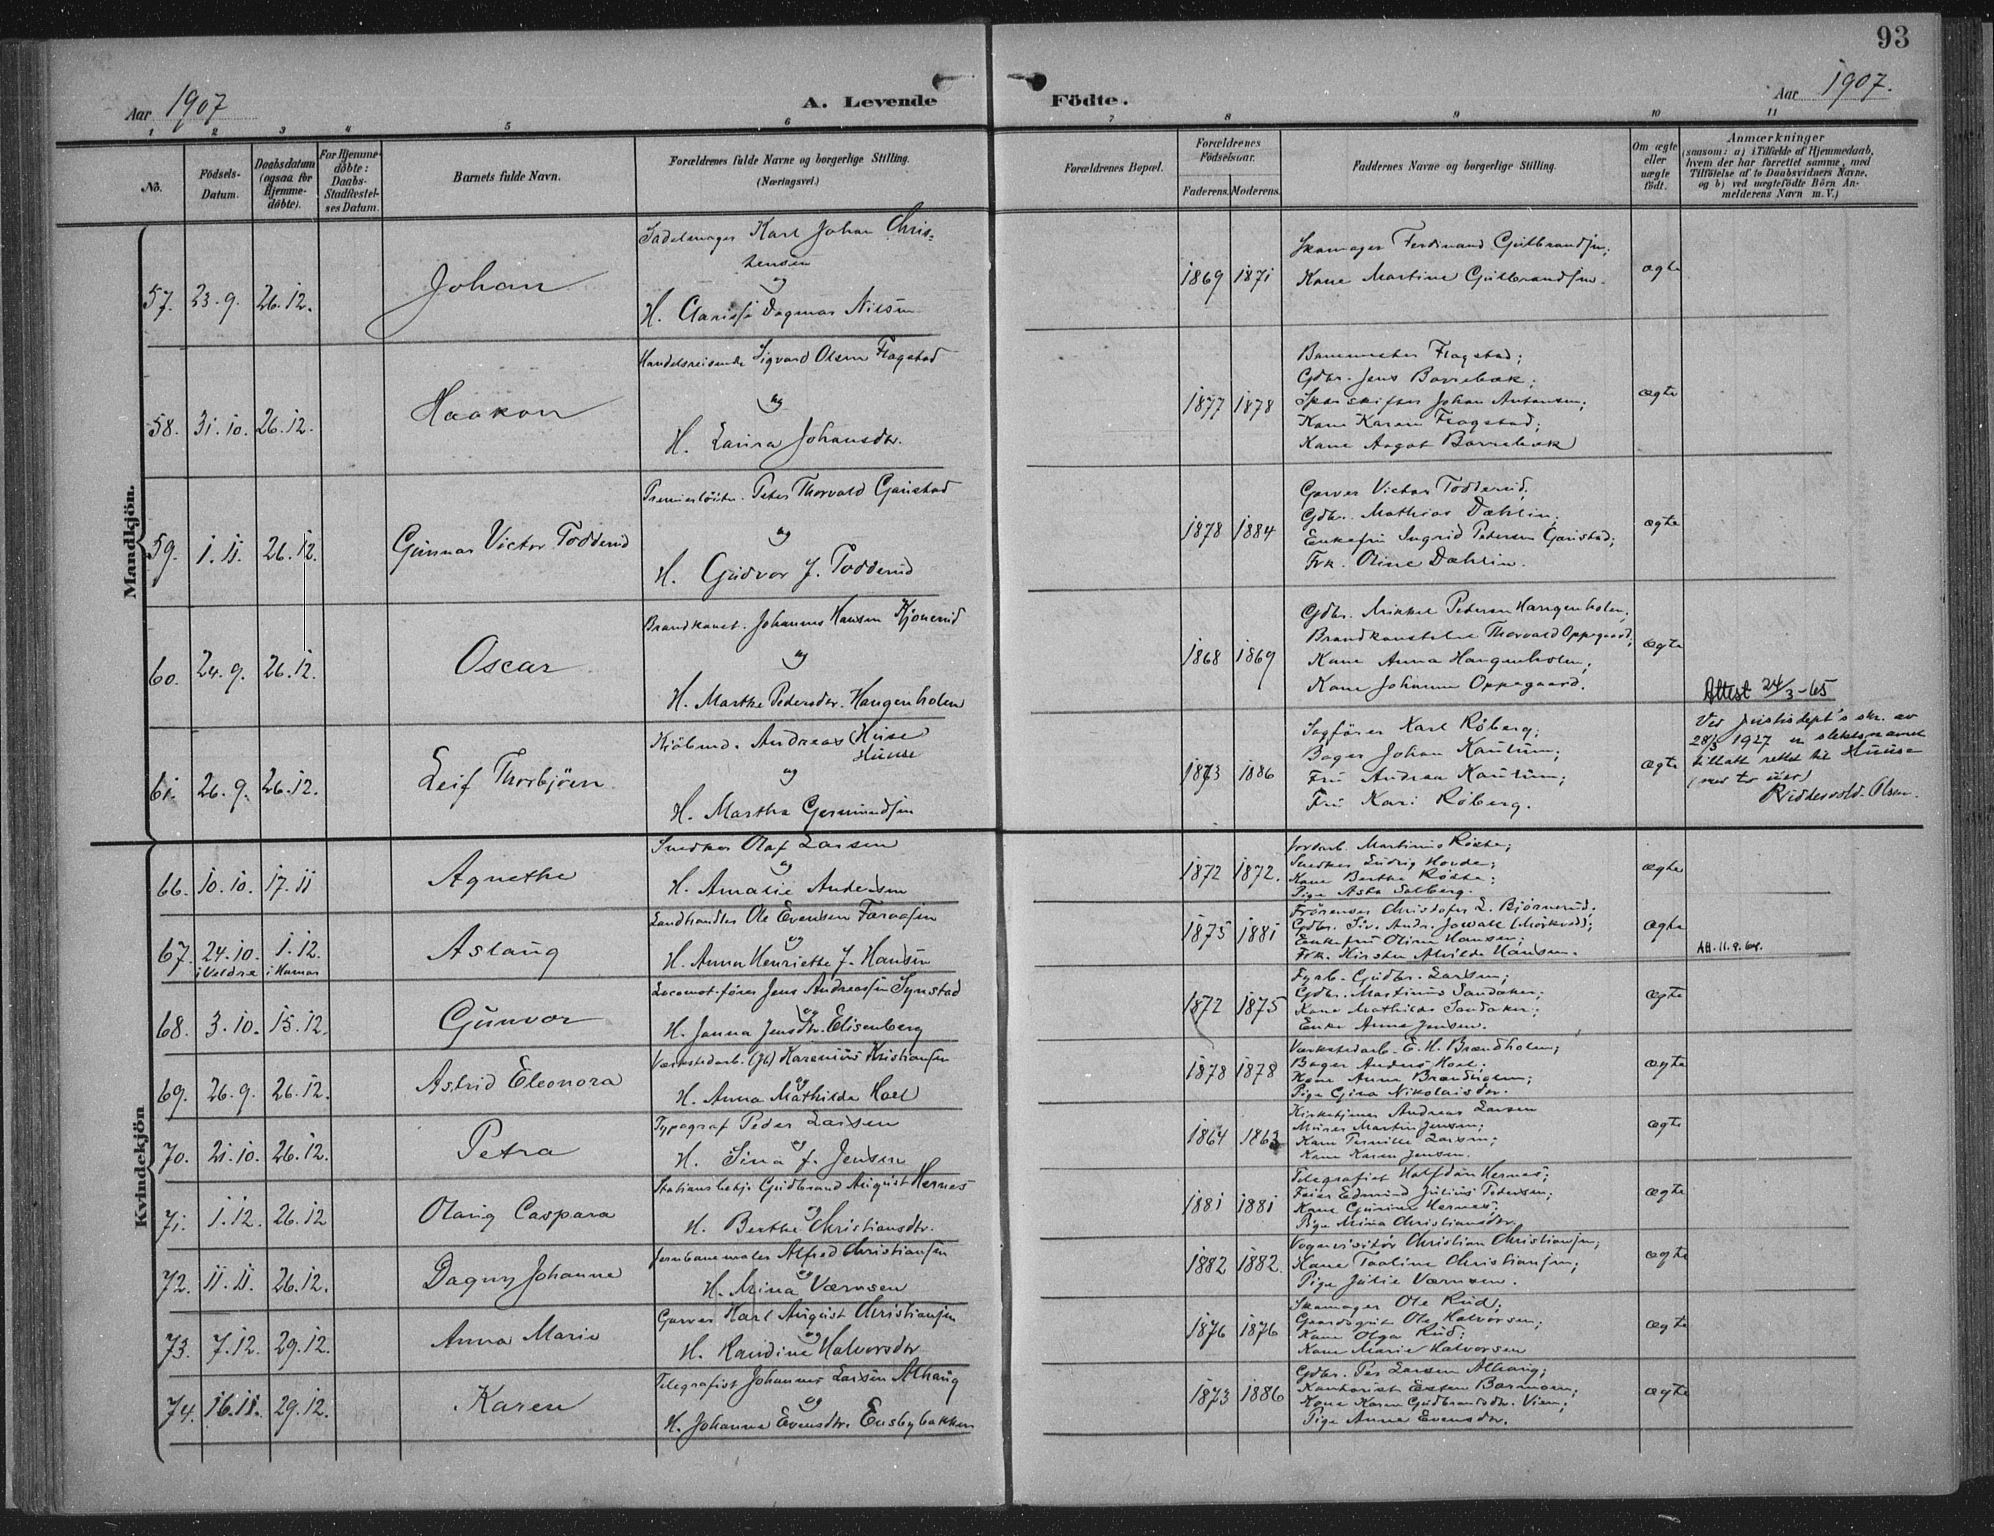 93
Aar 1907
A. Levende
Födte.
Aar 1907.
1 2 3 4 5 6 7 8 9 10 11
No.
Födsels-Datum.
Daabsdatum (ogsaa for Hjemme-döbte).
For Hjemme-döbte: Daabs-Stadfæstel-ses Datum.
Barnets fulde Navn.
Forældrenes fulde Navne og borgerlige Stilling.
(Næringsvei.)
Forældrenes Bopæl.
Forældrenes Födselsaar.
Faderens. Moderens.
Faddernes Navne og borgerlige Stilling.
Om ægte eller uægte födt.
Anmærkninger
(saasom: a) i Tilfælde af Hjemmedaab, hvem der har forrettet samme, med Tilföielse af to Daabsvidners Navne, og b) ved uægtefödte Börn An-melderens Navn m. V.)
Mandkjön.
57. 23.9. 26.12. Johan
Sadelmager Karl Johan Chris-
tensen
og
H. Clarissi Dagmar Nilsen
1869 1871
Skomager Ferdinand Gulbrandsen;
Kone Martine Gulbrandsen.
ægte
58. 31.10. 26.12. Haakon
Handelsreisende Sigvard Olsen Flagstad
og
H. Laura Johansdtr.
1877 1878
Banemester Flagstad;
Gdbr. Jens Borrebæk;
Sporskifter Johan Antonsen;
Kone Karen Flagstad;
Kone Aagot Borrebæk
ægte
59. 1.11. 26.12. Gunnar Victor Todderud
Premierlöitn. Peter Thorvald Garistad
og
H. Gudvor J. Todderud
1878 1884
Garver Victor Todderud;
Gdbr. Mathias Dæhlin;
Enkefru Ingrid Petersen Garistad;
Frk. Oline Dæhlin.
ægte
60. 24.9. 26.12. Oscar
Brandkonst. Johannes Hansen Kjonerud
og
H. Marthe Pedersdtr. Haugenholen
1868 1869
Gdbr. Mikkel Pedersen Haugenholen;
Brandkonstabel Thorvald Oppegaard;
Kone Anna Haugenholen;
Kone Johanne Oppegaard.
ægte
61. 26.9. 26.12. Leif Thorbjörn
Kjöbmd. Andreas Huse
Huuse
og
H. Martha Germundsen
1873 1886
Sagförer Karl Röberg;
Bager Johan Kautum;
Fru Andrea Kautum;
Fru Kari Röberg.
ægte
Attest 24/3-65
Ved justisdept's skr. av
28/5 1927 er slektsnavnet
tillatt rettet til Huuse
(med to u'er)
Riddervold-Olsen.
Kvindekjön
66. 10.10. 17.11 Agnethe
Snedker Olaf Larsen
og
H. Amalie Andersen
1872 1872.
Jordarb. Martinius Röste;
Snedker Ludvig Hovde;
Kone Berthe Röste;
Pige Asta Solberg.
ægte
67. 24.10. 1.12. Aslaug
i Veldre i Hamar
Landhandler Ole Evensen Faraasen
og
H. Anna Henriette J. Hansen
1875 1881
Christofer L. Björnerud;
Enkefru Olina Hansen;
Frk. Kirsten Alvilda Hansen.
ægte
Att. 11.9.64.
68. 3.10. 15.12. Gunvor
Locomot.förer Jens Andreassen Synstad
og
H. Janna Jensdtr. Elisenberg
1872 1875
Fyrb. Gudbr. Larsen;
Gdbr. Martinus Sandaker;
Kone Mathilde Sandaker;
Enke Anne Jensen.
ægte
69. 26.9. 26.12. Astrid Eleonora
Værkstedarb. (Jb) Karenius Kristiansen
og
H. Anna Mathilda Hoel
1878 1878
Værkstedarb. E. H. Brændholen;
Bager Anders Hoel;
Kone Anna Brændholen;
Pige Gina Nikolaisdtr.
ægte
70. 21.10. 26.12. Petra
Typograf Peder Larsen
og
H. Sina J. Jensen
1864 1863
Kirketjener Andreas Larsen
Murer Martin Jensen;
Kone Pernille Larsen;
Kone Karen Jensen.
ægte
71. 1.12. 26.12 Olaug Caspara
Stationsbetj. Gudbrand August Hernes
og
H. Berthe Christiansdtr.
1881 1881
Telegrafist Halfdan Hernes;
Feier Edmund Julius Petersen;
Kone Gurine Hernes;
Pige Mina Christiansdtr.
ægte
72. 11.11. 26.12. Dagny Johanne
Jernbanemaler Alfred Christiansen
og
H. Mina Værnsen
1882 1882.
Vognvisitör Christian Christiansen;
Kone Taaline Christiansen;
Pige Julie Værnsen.
ægte
73. 7.12. 29.12. Anna Marie
Garver Karl August Christiansen
og
H. Randine Halvorsdtr.
1876 1876
Skomager Ole Rud;
Gaardsgut Ole Halvorsen;
Kone Olga Rud;
Kone Marie Halvorsen
ægte
74. 16.11. 29.12. Karen
Telegrafist Johannes Larsen Alhaug
og
H. Johanne Evensdtr. Ensbybakken
1873 1886
Gdbr. Per Larsen Alhaug;
Kontorist Esten Barmoen;
Kone Karen Gudbrandsdtr. Vien;
Pige Anna Evensdtr.
ægte